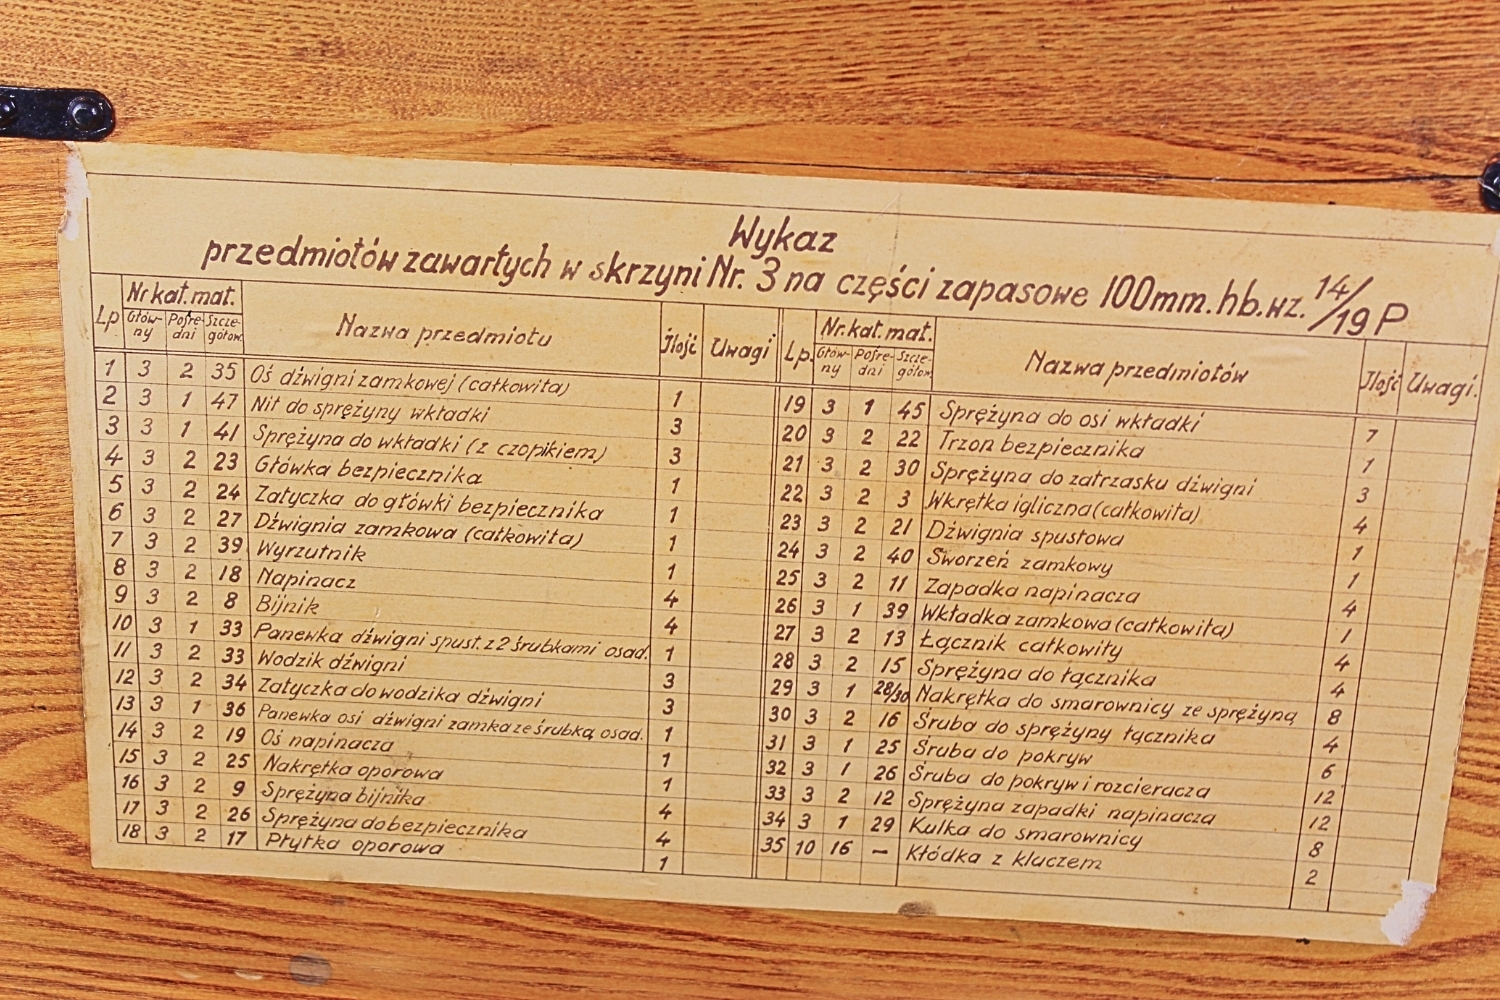 Wykaz
przedmiotów zawartych w skrzyni Nr. 3 na części zapasowe 100mm.hb.wz. 14/19 P
Lp. Nr kat. mat. Nazwa przedmiotu Ilość Uwagi
Głów-ny Pośre-dni Szcze-gółow.
1 3 2 35 Oś dźwigni zamkowej (całkowita) 1
2 3 1 47 Nit do sprężyny wkładki 3
3 3 1 41 Sprężyna do wkładki (z czopikiem) 3
4 3 2 23 Główka bezpiecznika 1
5 3 2 24 Zatyczka do główki bezpiecznika 1
6 3 2 27 Dźwignia zamkowa (całkowita) 1
7 3 2 39 Wyrzutnik 1
8 3 2 18 Napinacz 4
9 3 2 8 Bijnik 4
10 3 1 33 Panewka dźwigni spust. z 2 śrubkami osad. 1
11 3 2 33 Wodzik dźwigni 3
12 3 2 34 Zatyczka do wodzika dźwigni 3
13 3 1 36 Panewka osi dźwigni zamka ze śrubką osad. 1
14 3 2 19 Oś napinacza 1
15 3 2 25 Nakrętka oporowa 1
16 3 2 9 Sprężyna bijnika 4
17 3 2 26 Sprężyna do bezpiecznika 4
18 3 2 17 Płytka oporowa 1
Lp. Nr. kat. mat. Nazwa przedmiotów Ilość Uwagi.
Głów-ny Pośre-dni Szcze-gółow.
19 3 1 45 Sprężyna do osi wkładki 7
20 3 2 22 Trzon bezpiecznika 1
21 3 2 30 Sprężyna do zatrzasku dźwigni 3
22 3 2 3 Wkrętka igliczna (całkowita) 4
23 3 2 21 Dźwignia spustowa 1
24 3 2 40 Sworzeń zamkowy 1
25 3 2 11 Zapadka napinacza 4
26 3 1 39 Wkładka zamkowa (całkowita) 1
27 3 2 13 Łącznik całkowity 4
28 3 2 15 Sprężyna do łącznika 4
29 3 1 28/30 Nakrętka do smarownicy ze sprężyną 8
30 3 2 16 Śruba do sprężyny łącznika 4
31 3 1 25 Śruba do pokryw 6
32 3 1 26 Śruba do pokryw i rozcieracza 12
33 3 2 12 Sprężyna zapadki napinacza 12
34 3 1 29 Kulka do smarownicy 8
35 10 16 — Kłódka z kluczem 2